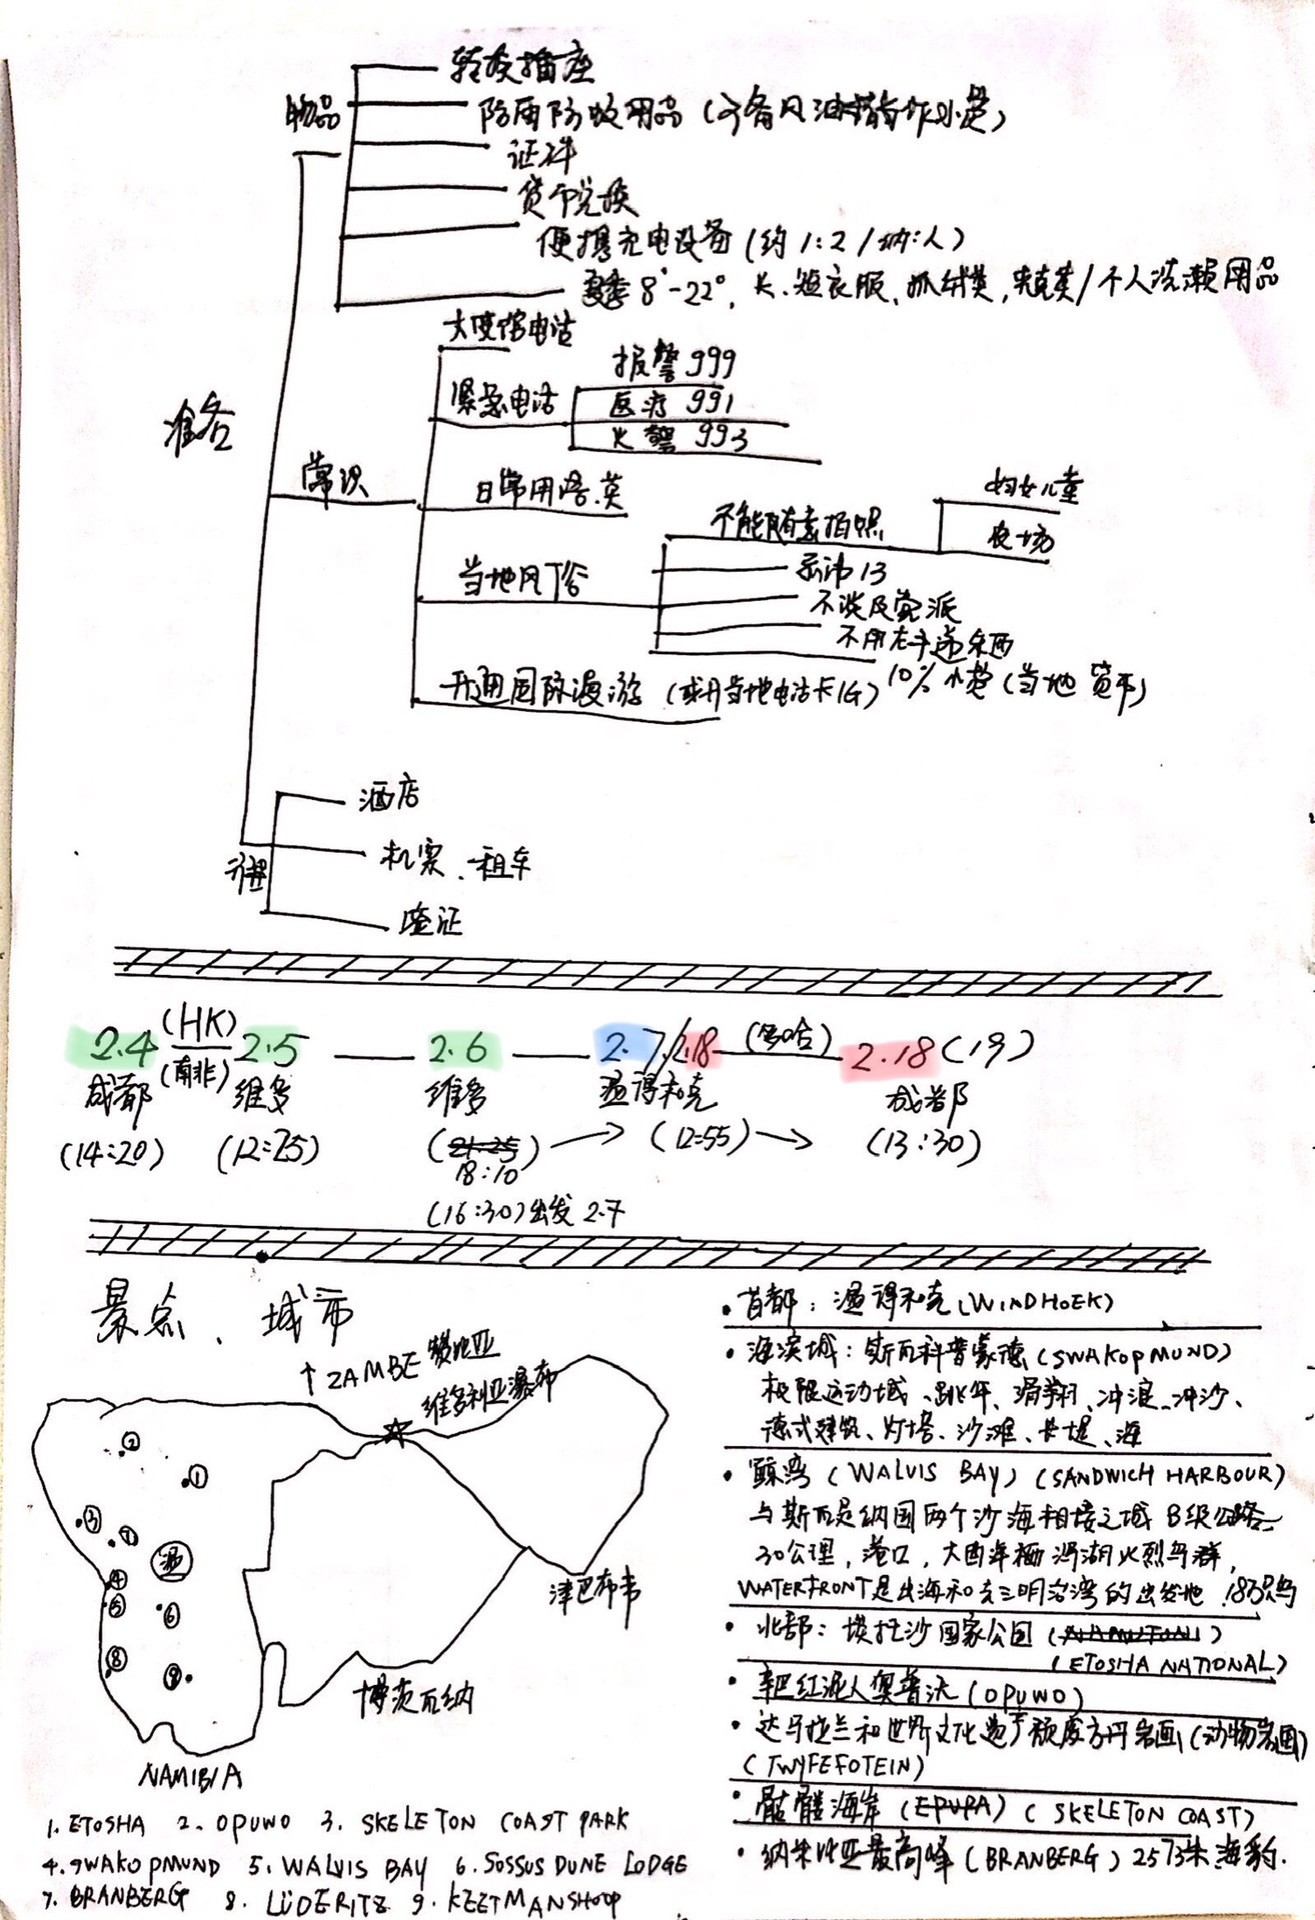 物品
转换插座
防雨防蚊用品（多备风油精作小费）
证件
货币兑换
便携充电设备（约1:2/纳:人）
夏季8°-22°，长、短衣服、抓绒类，夹克类/个人洗漱用品
准备
常识
大使馆电话
紧急电话
报警 999
医疗 991
火警 993
日常用语.英
当地风俗
不能随意拍照
妇女儿童
农场
忌讳13
不谈及党派
不用左手递东西
10%小费（当地货币）
开通国际漫游（或开当地电话卡1G）
酒店
机票、租车
签证
2.4 (HK) (南非) 2.5 2.6 2.7/2.18 (多哈) 2.18 (19)
成都 维多 维多 温得和克 成都
(14:20) (12:25) (21:25) (12:55) (13:30)
18:10
(16:30)出发 2.7
景点、城市
↑ZAMBE 赞比亚
维多利亚瀑布
② ① ③ ⑦ 温 ④ ⑤ ⑥ ⑧ ⑨
津巴布韦
博茨瓦纳
NAMIBIA
1. ETOSHA 2. OPUWO 3. SKELETON COAST PARK
4. SWAKOPMUND 5. WALVIS BAY 6. SOSSUS DUNE LODGE
7. BRANBERG 8. LÜDERITZ 9. KEETMANSHOOP
• 首都：温得和克(WINDHOEK)
• 海滨城：斯瓦科普蒙德(SWAKOPMUND)
极限运动城、跳伞、滑翔、冲浪、冲沙、
德式建筑、灯塔、沙滩、长堤、海
• 鲸湾（WALVIS BAY）（SANDWICH HARBOUR）
与斯瓦是纳国两个沙海相接之城 B级公路
30公里，港口，大西洋 潟湖火烈鸟群，
WATERFRONT是出海和去三明治湾的出发地
• 北部：埃托沙国家公园（NAMUTONI）
(ETOSHA NATIONAL)
• 辛巴红泥人奥普沃(OPUWO)
• 达马拉兰和世界文化遗产 岩画(动物岩画)
(TWYFEFOTEIN)
• 骷髅海岸（EPUPA）（SKELETON COAST）
• 纳米比亚最高峰（BRANBERG）2573米 海豹.